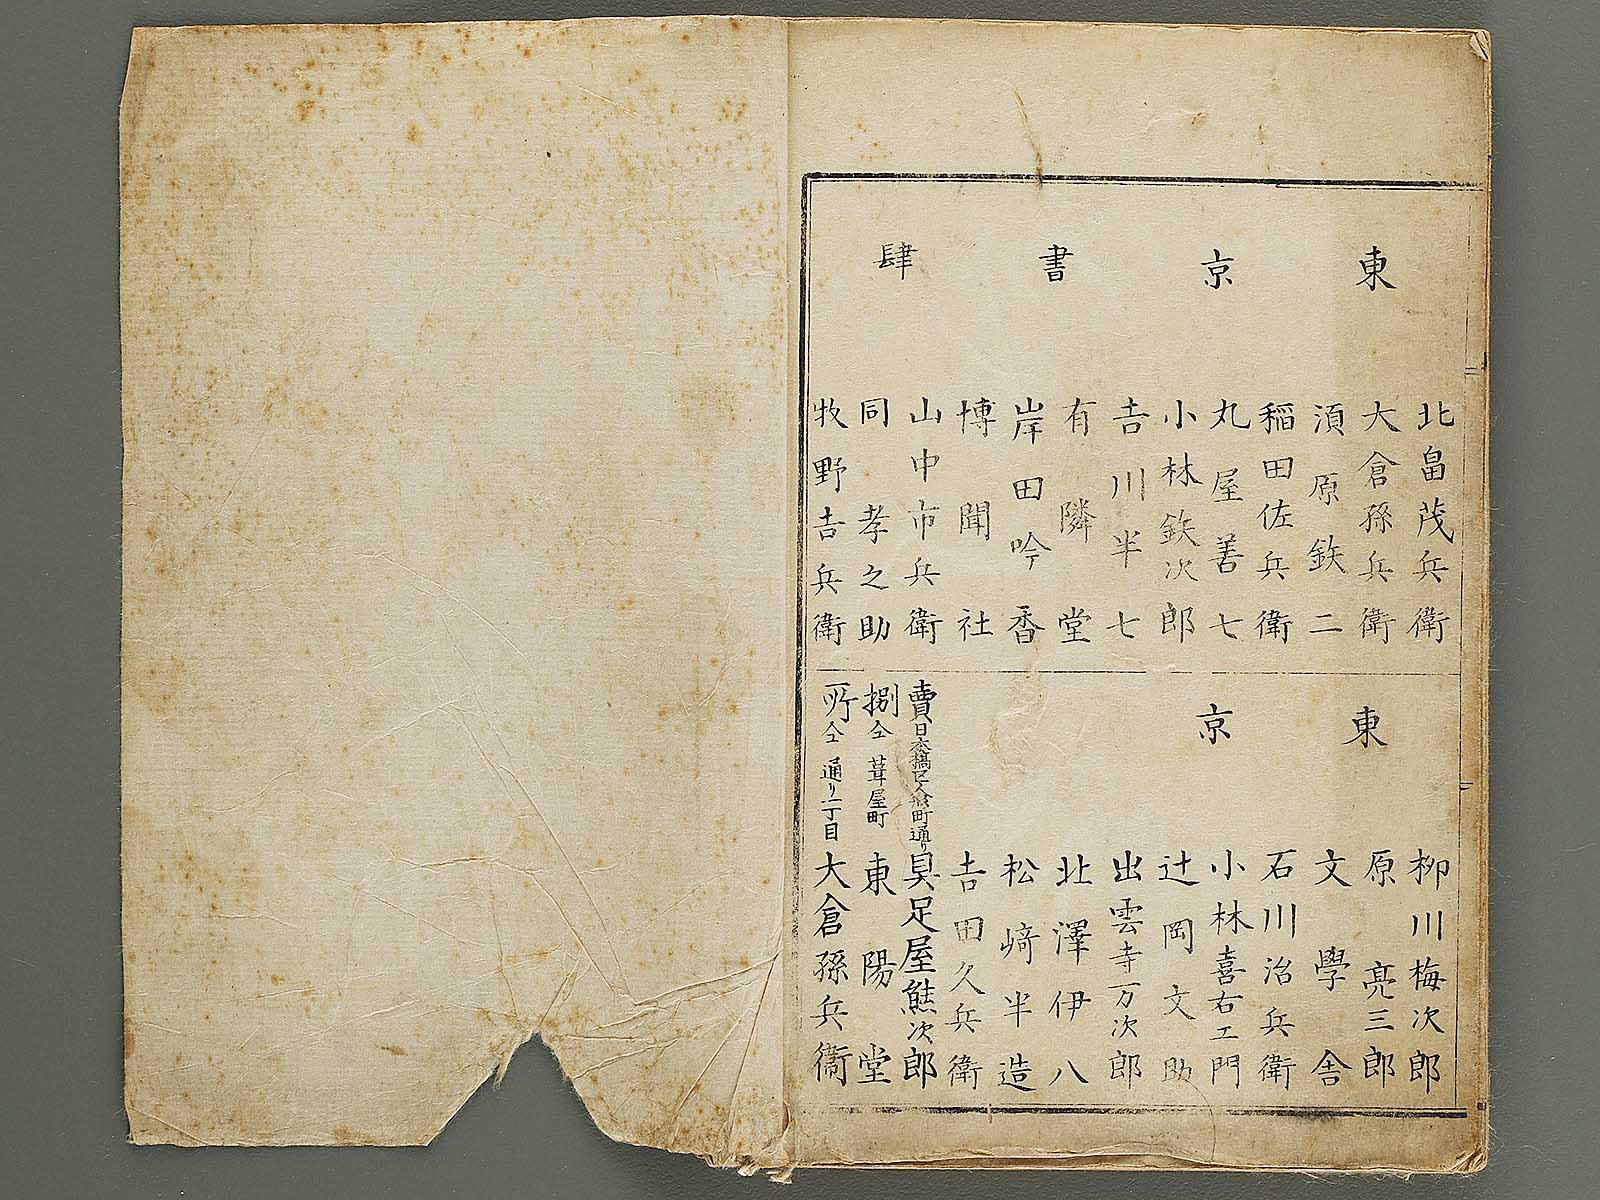 東京書肆
北畠茂兵衛
大倉孫兵衛
須原鉄二
稲田佐兵衛
丸屋善七
小林鉄次郎
吉川半七
有隣堂
岸田吟香
博聞社
山中市兵衛
同孝之助
牧野吉兵衛
東京
柳川梅次郎
原亮三郎
文學舍
石川治兵衛
小林喜右エ門
辻岡文助
出雲寺万次郎
北澤伊八
松﨑半造
吉田久兵衛
賣捌所
日本橋区人形町通り 具足屋熊次郎
仝 葺屋町 東陽堂
仝 通り一丁目 大倉孫兵衛